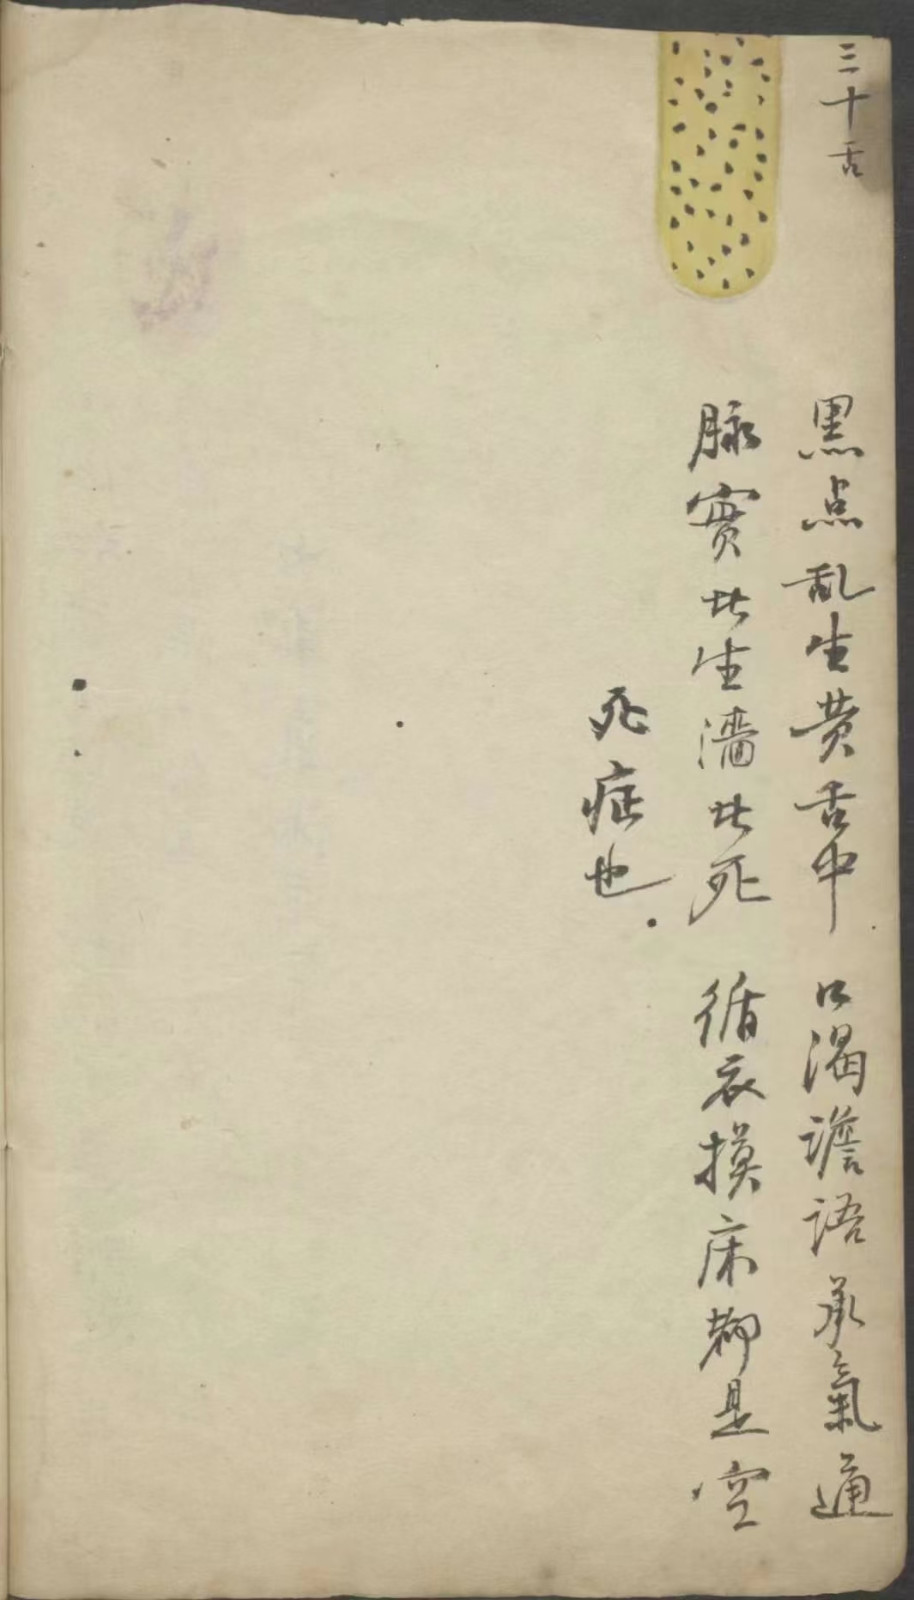 三十舌
黑点乱生黄舌中 口渴譫語承氣通
脉實者生濇者死 循衣摸床都是空
死症也